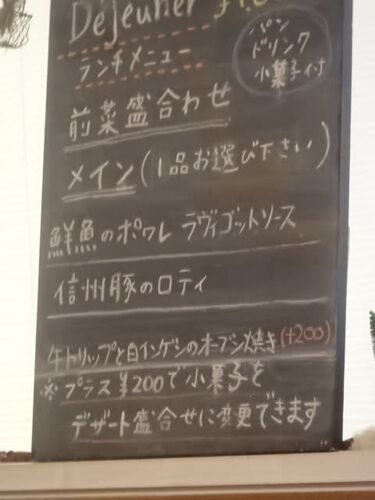 Déjeuner
ランチメニュー
パン
ドリンク
小菓子付
前菜盛合わせ
メイン(1品お選び下さい)
鮮魚のポワレ ラヴィゴットソース
信州豚のロティ
牛トリップと白インゲンのオーブン焼き(+200)
※プラス¥200で小菓子を
デザート盛合せに変更できます